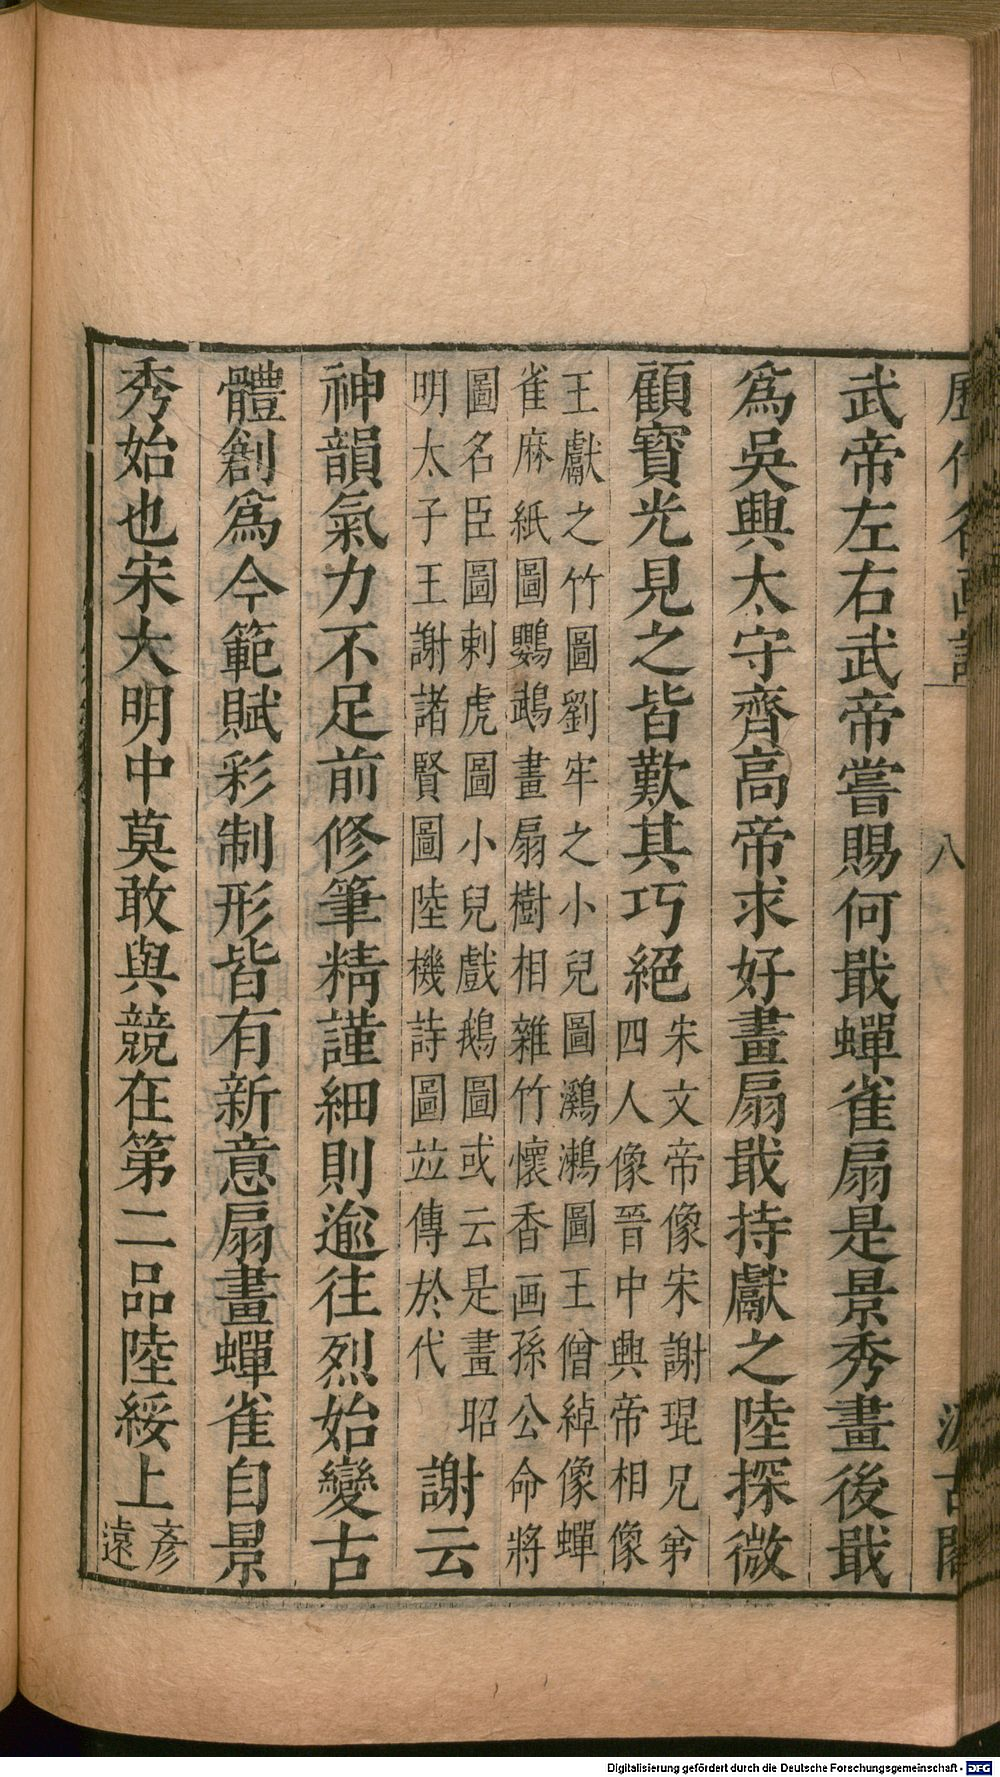 歷代名画記 八 汲古閣
武帝左右武帝嘗賜何戢蟬雀扇是景秀畫後戢
爲吳興太守齊高帝求好畫扇戢持獻之陸探微
顧寳光見之皆歎其巧絕
朱文帝像宋謝琨兄弟
四人像晉中興帝相像
王獻之竹圖劉牢之小兒圖鸂鶒圖王僧綽像蟬
雀麻紙圖鸚鵡畫扇樹相雜竹懷香画孫公命將
圖名臣圖刺虎圖小兒戲鵝圖或云是畫昭
明太子王謝諸賢圖陸機詩圖竝傳於代
謝云
神韻氣力不足前修筆精謹細則逾往烈始變古
體創爲今範賦彩制形皆有新意扇畫蟬雀自景
秀始也宋大明中莫敢與競在第二品陸綏上
彥
遠
Digitalisierung gefördert durch die Deutsche Forschungsgemeinschaft - DFG